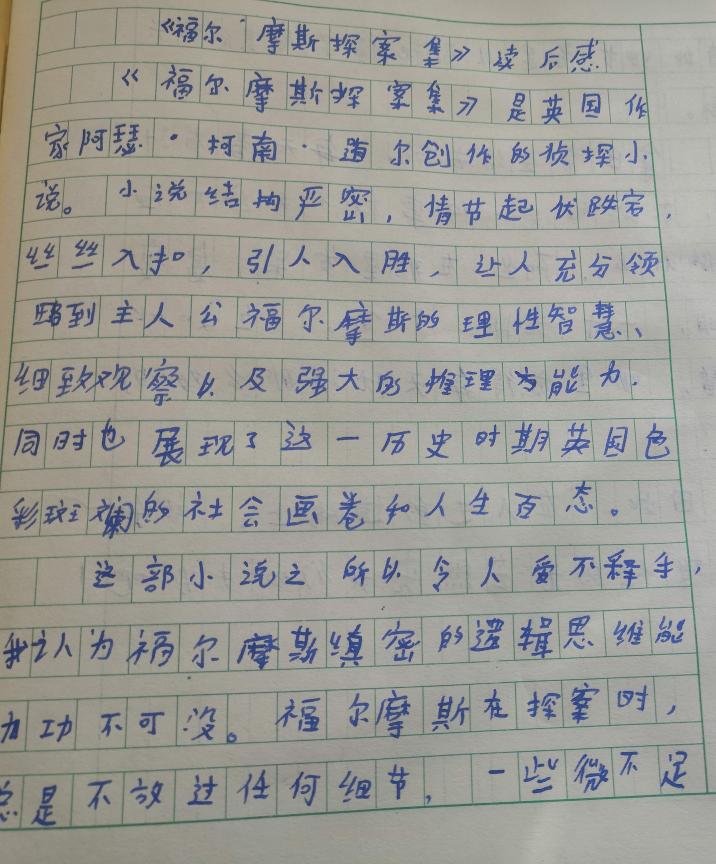 《福尔摩斯探案集》读后感
《福尔摩斯探案集》是英国作
家阿瑟·柯南·道尔创作的侦探小
说。小说结构严密,情节起伏跌宕,
丝丝入扣,引人入胜,让人充分领
略到主人公福尔摩斯的理性智慧、
细致观察以及强大的推理为能力.
同时也展现了这一历史时期英国色
彩斑斓的社会画卷和人生百态。
这部小说之所以令人爱不释手,
我认为福尔摩斯缜密的逻辑思维能
力功不可没。福尔摩斯在探案时,
总是不放过任何细节,一些微不足